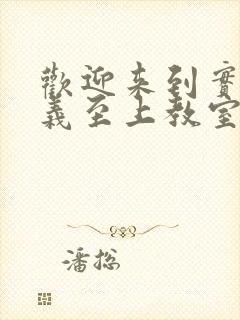 歡迎来到實
義至上教室
潘总